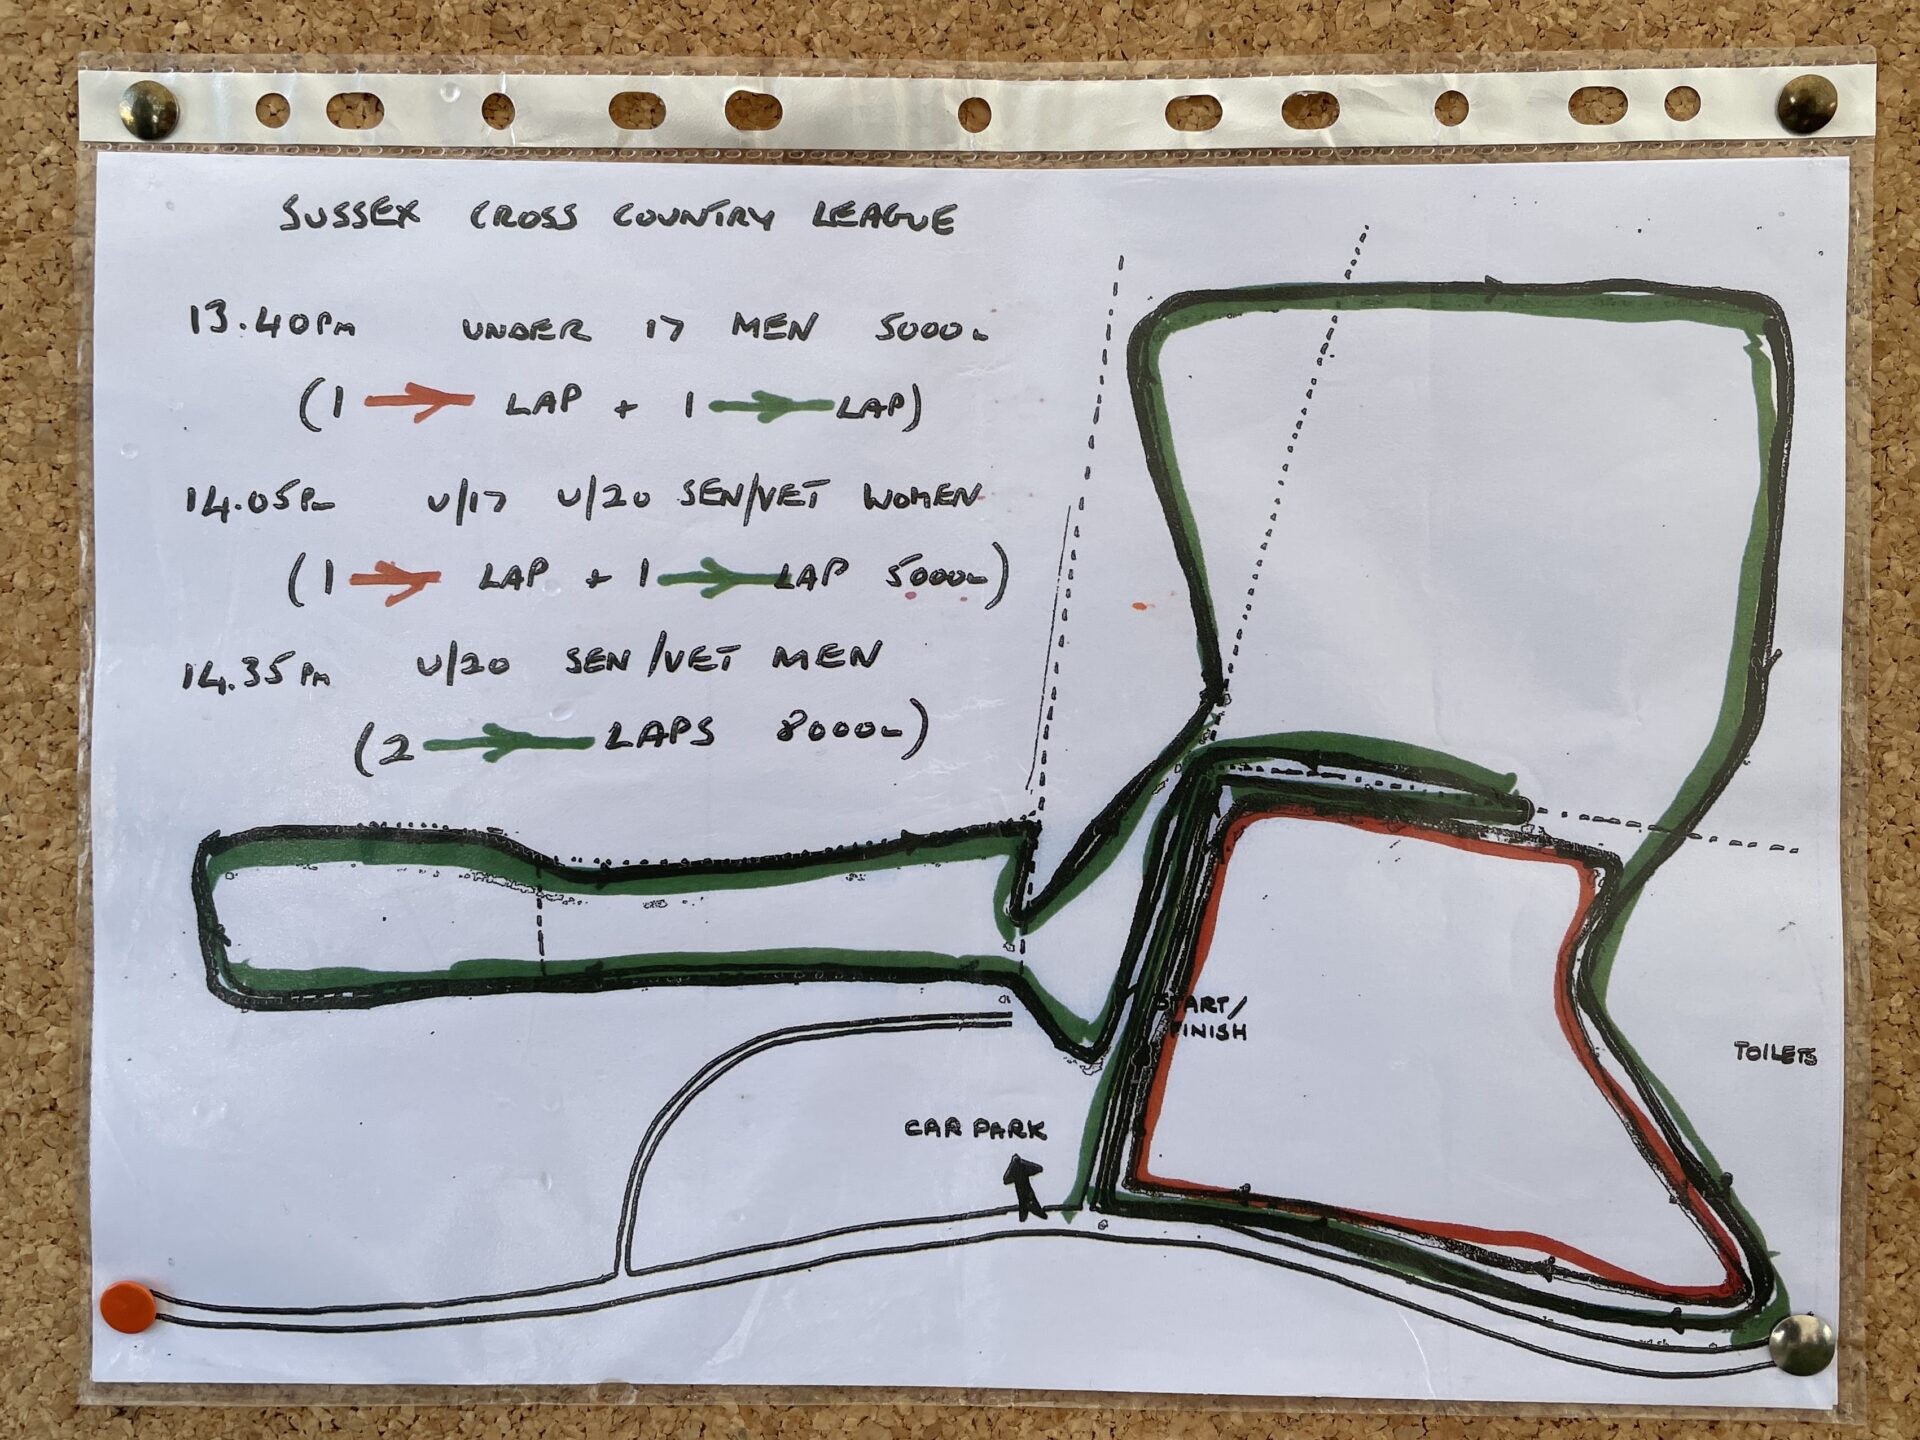 SUSSEX CROSS COUNTRY LEAGUE
13.40PM UNDER 17 MEN 5000m
(1 LAP + 1 LAP)
14.05PM U/17 U/20 SEN/VET WOMEN
(1 LAP + 1 LAP 5000m)
14.35PM U/20 SEN/VET MEN
(2 LAPS 8000m)
START/
FINISH
TOILETS
CAR PARK